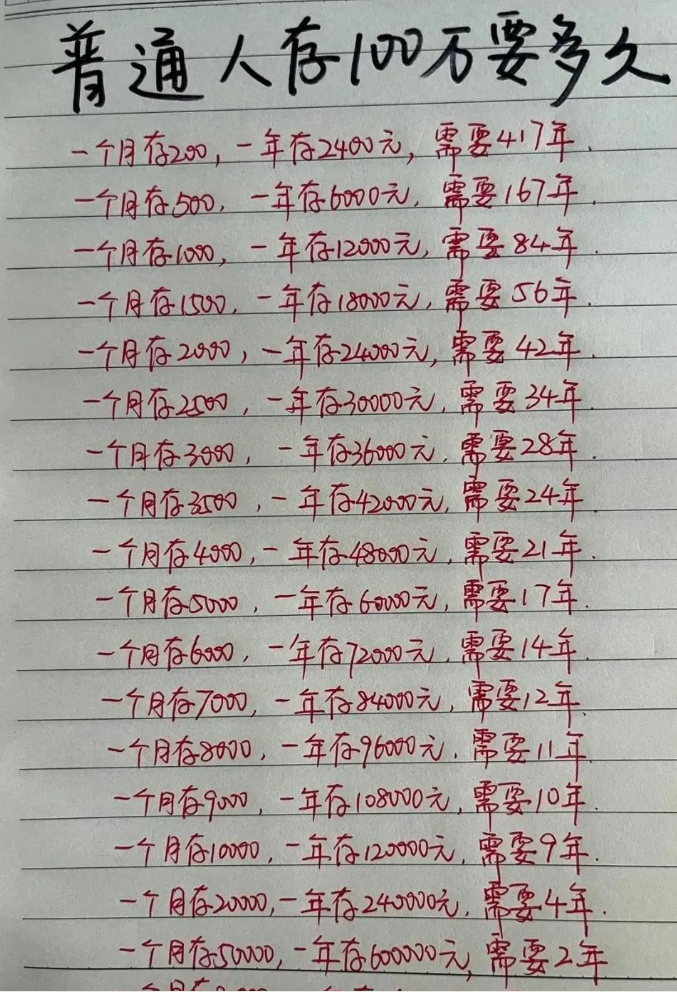 普通人存100万要多久
一个月存200，一年存2400元，需要417年.
一个月存500，一年存6000元，需要167年
一个月存1000，一年存12000元，需要84年.
一个月存1500，一年存18000元，需要56年.
一个月存2000，一年存24000元，需要42年.
一个月存2500，一年存30000元，需要34年.
一个月存3000，一年存36000元，需要28年.
一个月存3500，一年存42000元，需要24年.
一个月存4000，一年存48000元，需要21年.
一个月存5000，一年存60000元，需要17年.
一个月存6000，一年存72000元，需要14年.
一个月存7000，一年存84000元，需要12年.
一个月存8000，一年存96000元，需要11年.
一个月存9000，一年存108000元，需要10年.
一个月存10000，一年存120000元，需要9年.
一个月存20000，一年存240000元，需要4年.
一个月存50000，一年存600000元，需要2年